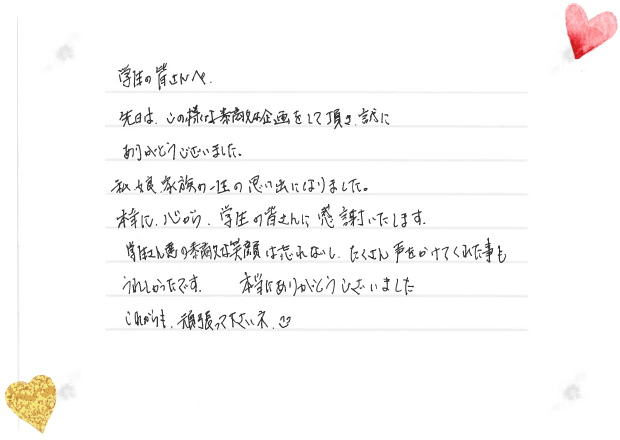 学生の皆さんへ.
先日は、この様な素敵な企画をして頂き、誠に
ありがとうございました。
私、娘、家族の一生の思い出になりました。
本当に、心から、学生の皆さんに感謝いたします.
学生さん達の素敵な笑顔は忘れないし、たくさん声をかけてくれた事も
うれしかったです. 本当にありがとうございました
これからも、頑張って下さいネ.